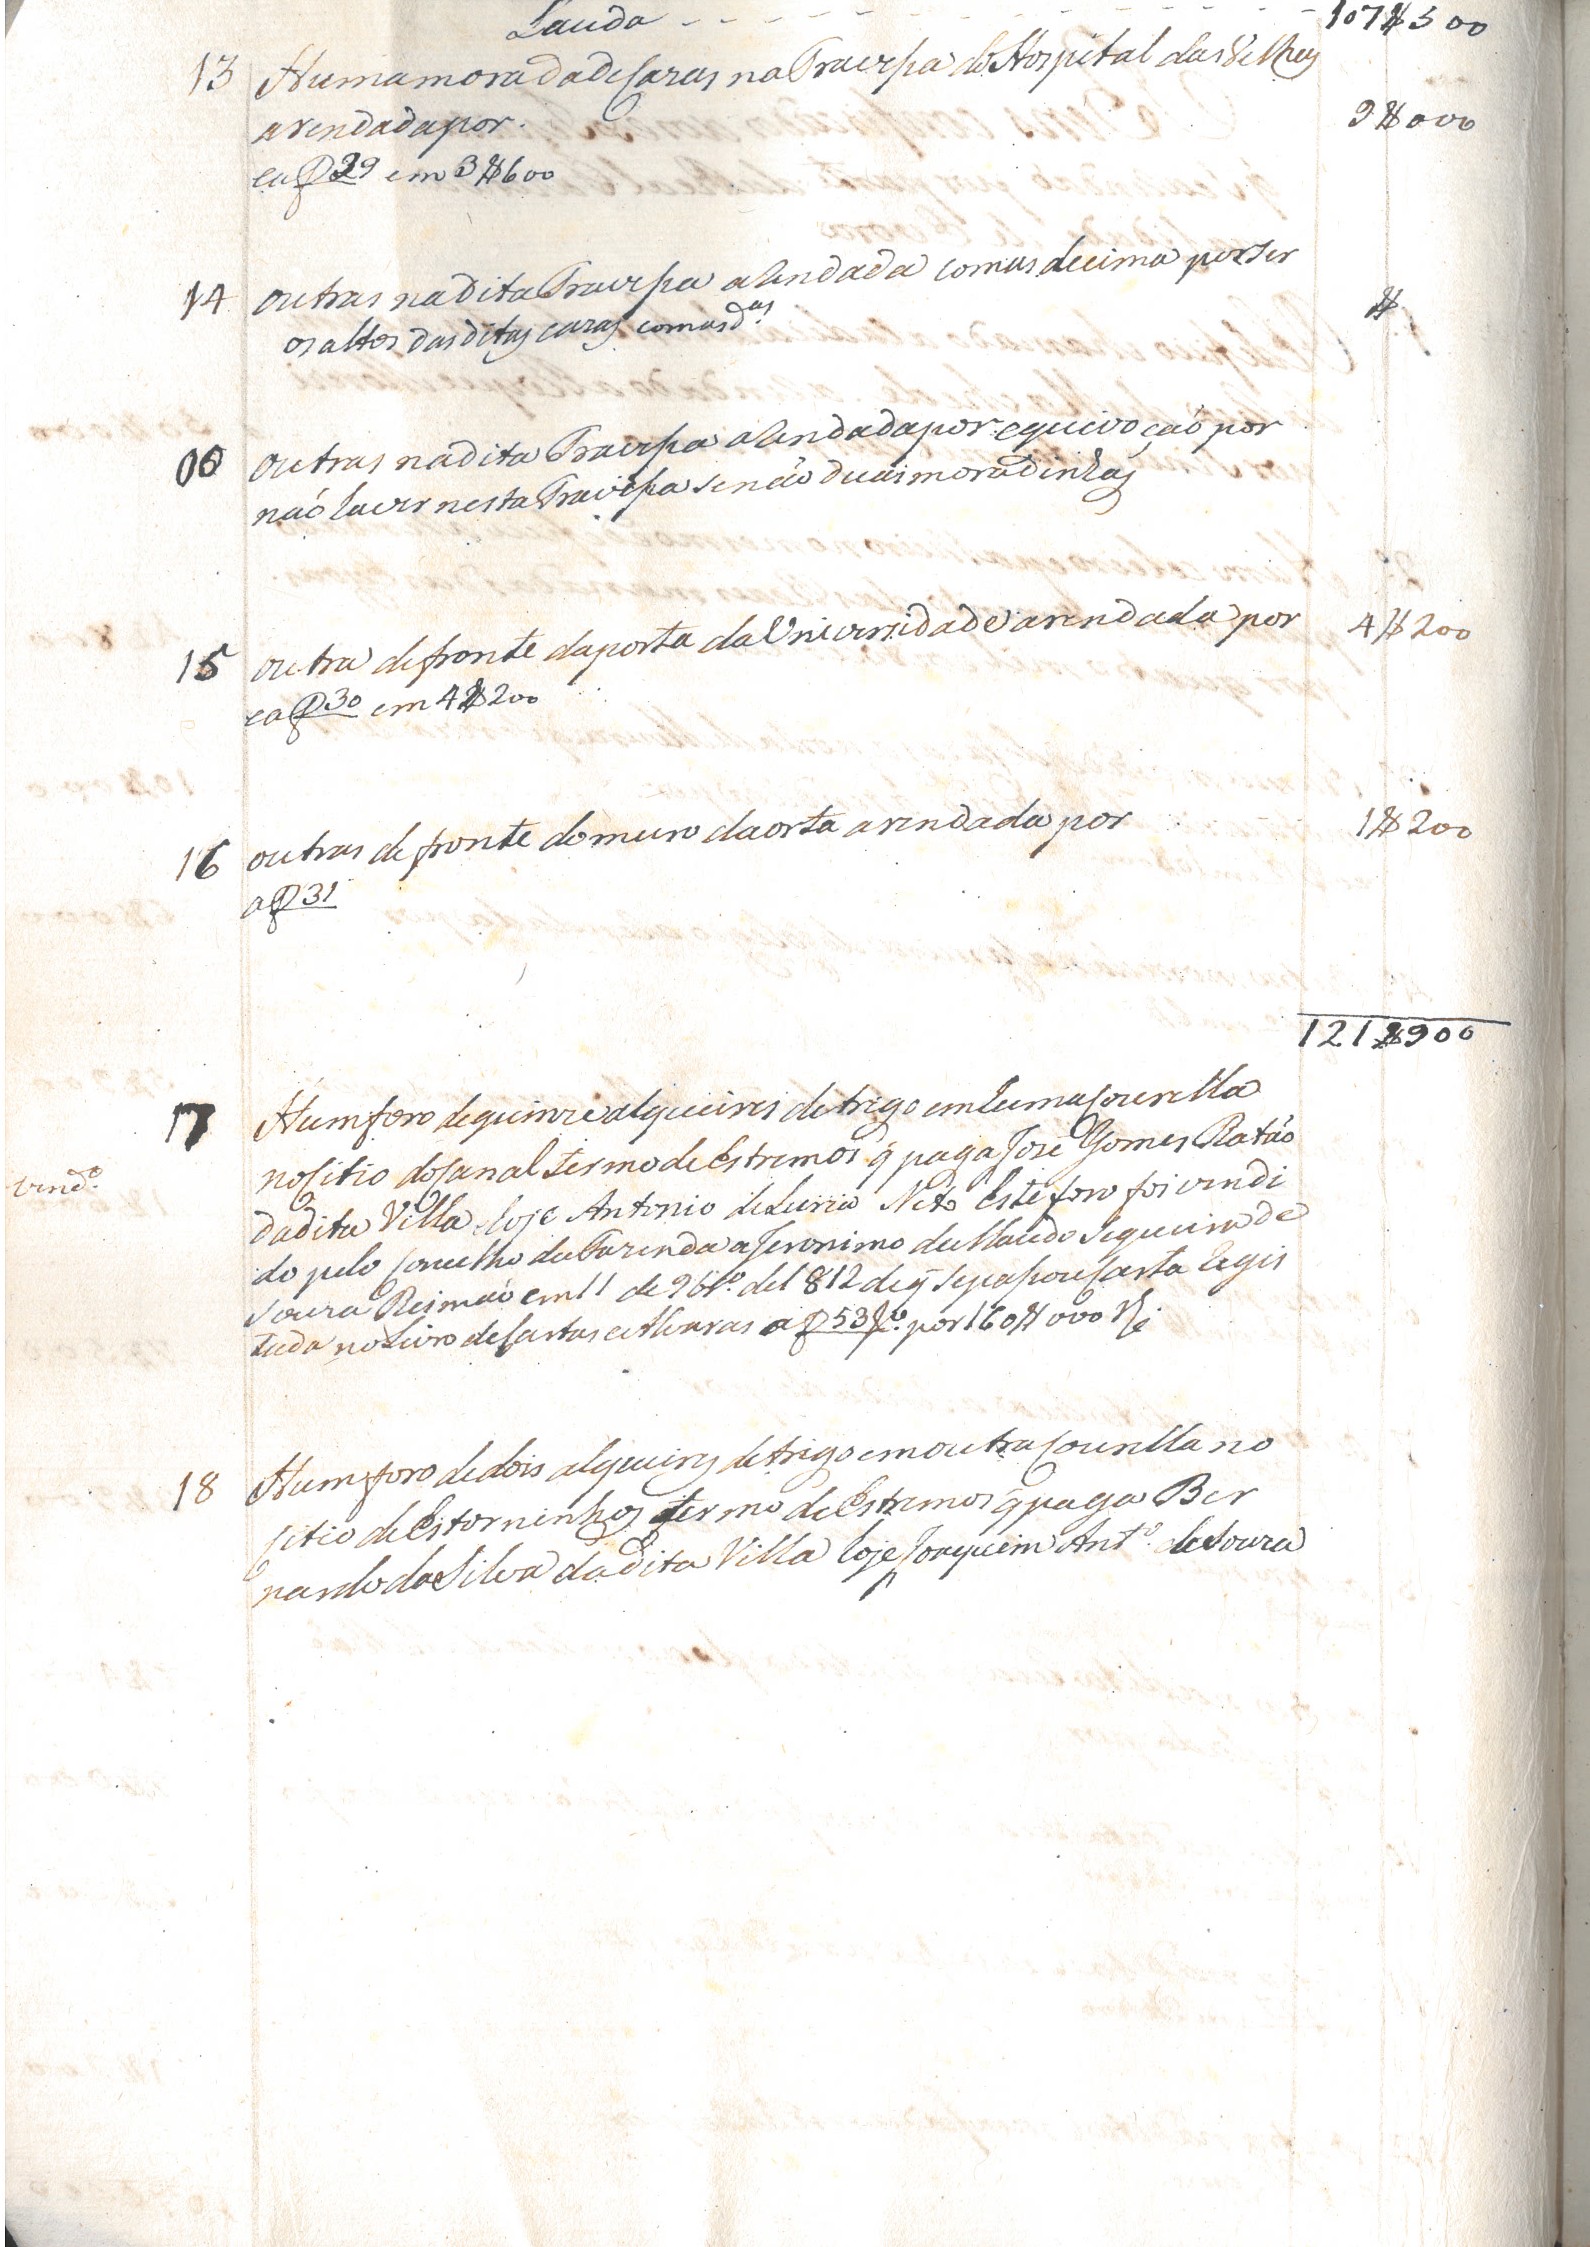 Lauda - - - - - - - - - - 107$500
13 Huma morada de Cazas na Travessa do Hospital das Velhas
arendada por. 9$000
ea f 29 em 3$600
14 outras na dita Travessa arendada com as decima por ser $
os altos das ditas cazas com as d.as
00 outras na dita Travessa arendada por equivocação por
não haver nesta Travessa senão duas moradinhas
15 outra defronte da porta da Universidade arendada por 4$200
ea f 30 em 4$200
16 outras defronte do muro da orta arendada por 1$200
a f 31
121$900
17 Hum foro de quinze alqueires de trigo em huma Courella
no Sitio do Canal termo de Estremos q̃ paga José Gomes Ratão
vend.º
da dita Villa hoje Antonio de Neto Este foro foi vendi
do pelo Concelho da Fazenda a Jeronimo de Macedo Sequeira de
Souza Reimão em 11 de 9br.º de 1812 de q̃ se passou Carta Regis
tada no Livro de Cartas e Alvaras a f 53 v.º por 160$000 R.s
18 Hum foro de dois alqueires de trigo em outra Courella no
sitio de Estorninhos termo de Estremos q̃ paga Ber
nardo da Silva da dita Villa hoje Joaquim Ant.º de Souza